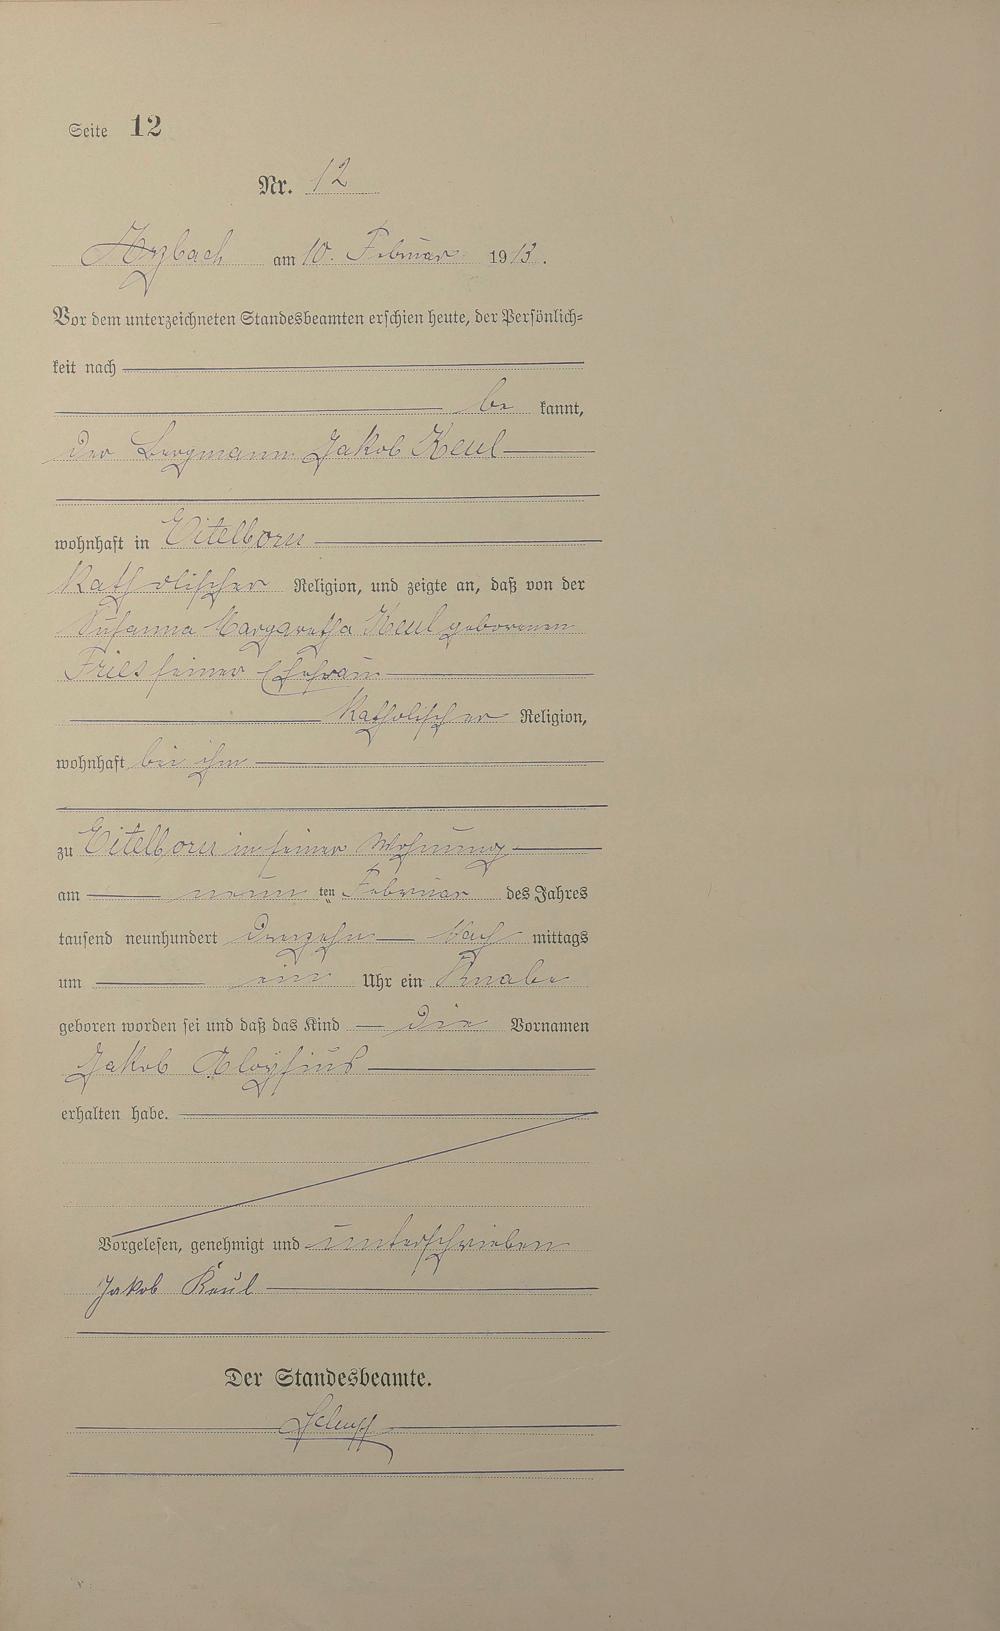 Seite 12
Nr. 12
Arzbach am 10. Februar 1913.
Vor dem unterzeichneten Standesbeamten erschien heute, der Persönlich-
keit nach
be kannt,
der Bergmann Jakob Keul
wohnhaft in Eitelborn
katholischer Religion, und zeigte an, daß von der
Susanna Margaretha Keul geborenen
Fries seiner Ehefrau
katholischer Religion,
wohnhaft bei ihm
zu Eitelborn in seiner Wohnung
am neun ten Februar des Jahres
tausend neunhundert dreizehn Nach mittags
um ein Uhr ein Knabe
geboren worden sei und daß das Kind die Vornamen
Jakob Aloysius
erhalten habe.
Vorgelesen, genehmigt und unterschrieben
Jakob Keul
Der Standesbeamte.